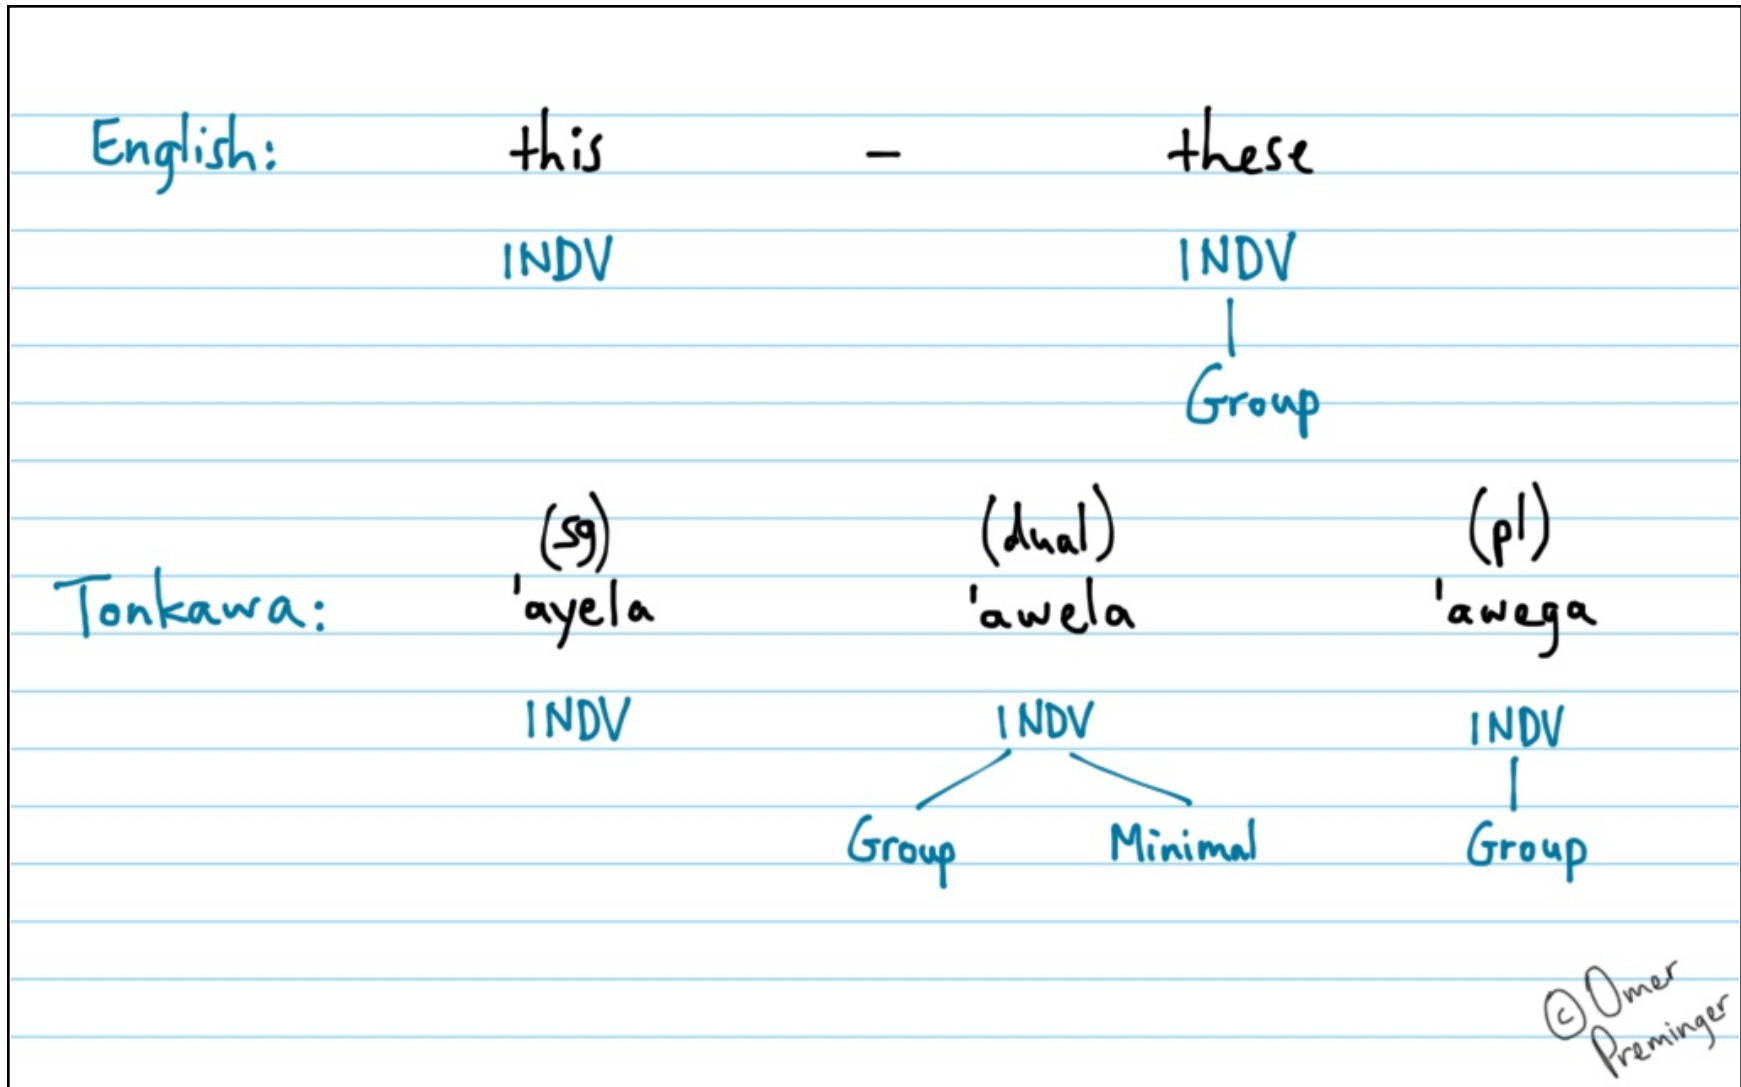 English: this – these
INDV INDV
Group
(sg) (dual) (pl)
Tonkawa: 'ayela 'awela 'awega
INDV INDV INDV
Group Minimal Group
© Omer
Preminger